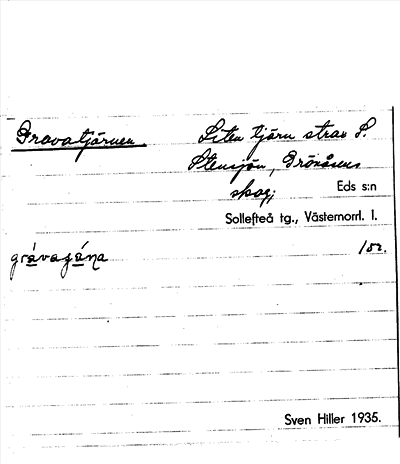 Gravatjärnen. Liten tjärn strax S.
Stensjön, Brönåsens
skog;
Eds s:n
Sollefteå tg., Västernorrl. l.
grávagána
Sven Hiller 1935.